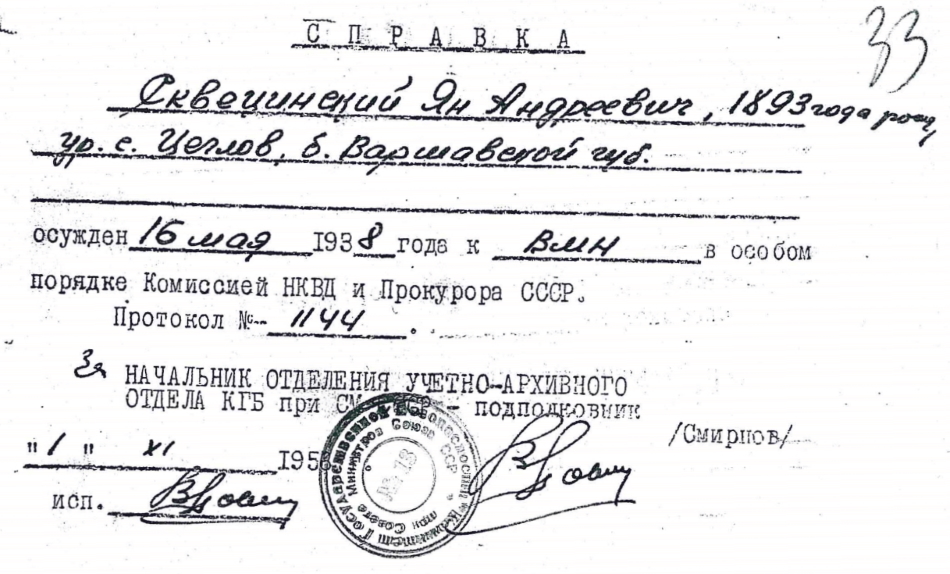 33
СПРАВКА
Сквецинский Ян Андреевич, 1893 года рожд,
ур. с. Цеглов, б. Варшавской губ.
осужден 16 мая 1938 года к ВМН в особом
порядке Комиссией НКВД и Прокурора СССР.
Протокол № 1144.
За НАЧАЛЬНИК ОТДЕЛЕНИЯ УЧЕТНО-АРХИВНОГО
ОТДЕЛА КГБ при СМ - подполковник
/Смирнов/
"1" XI 195
исп.
Государственной Безопасности Комитет
при Совете Министров Союза ССР